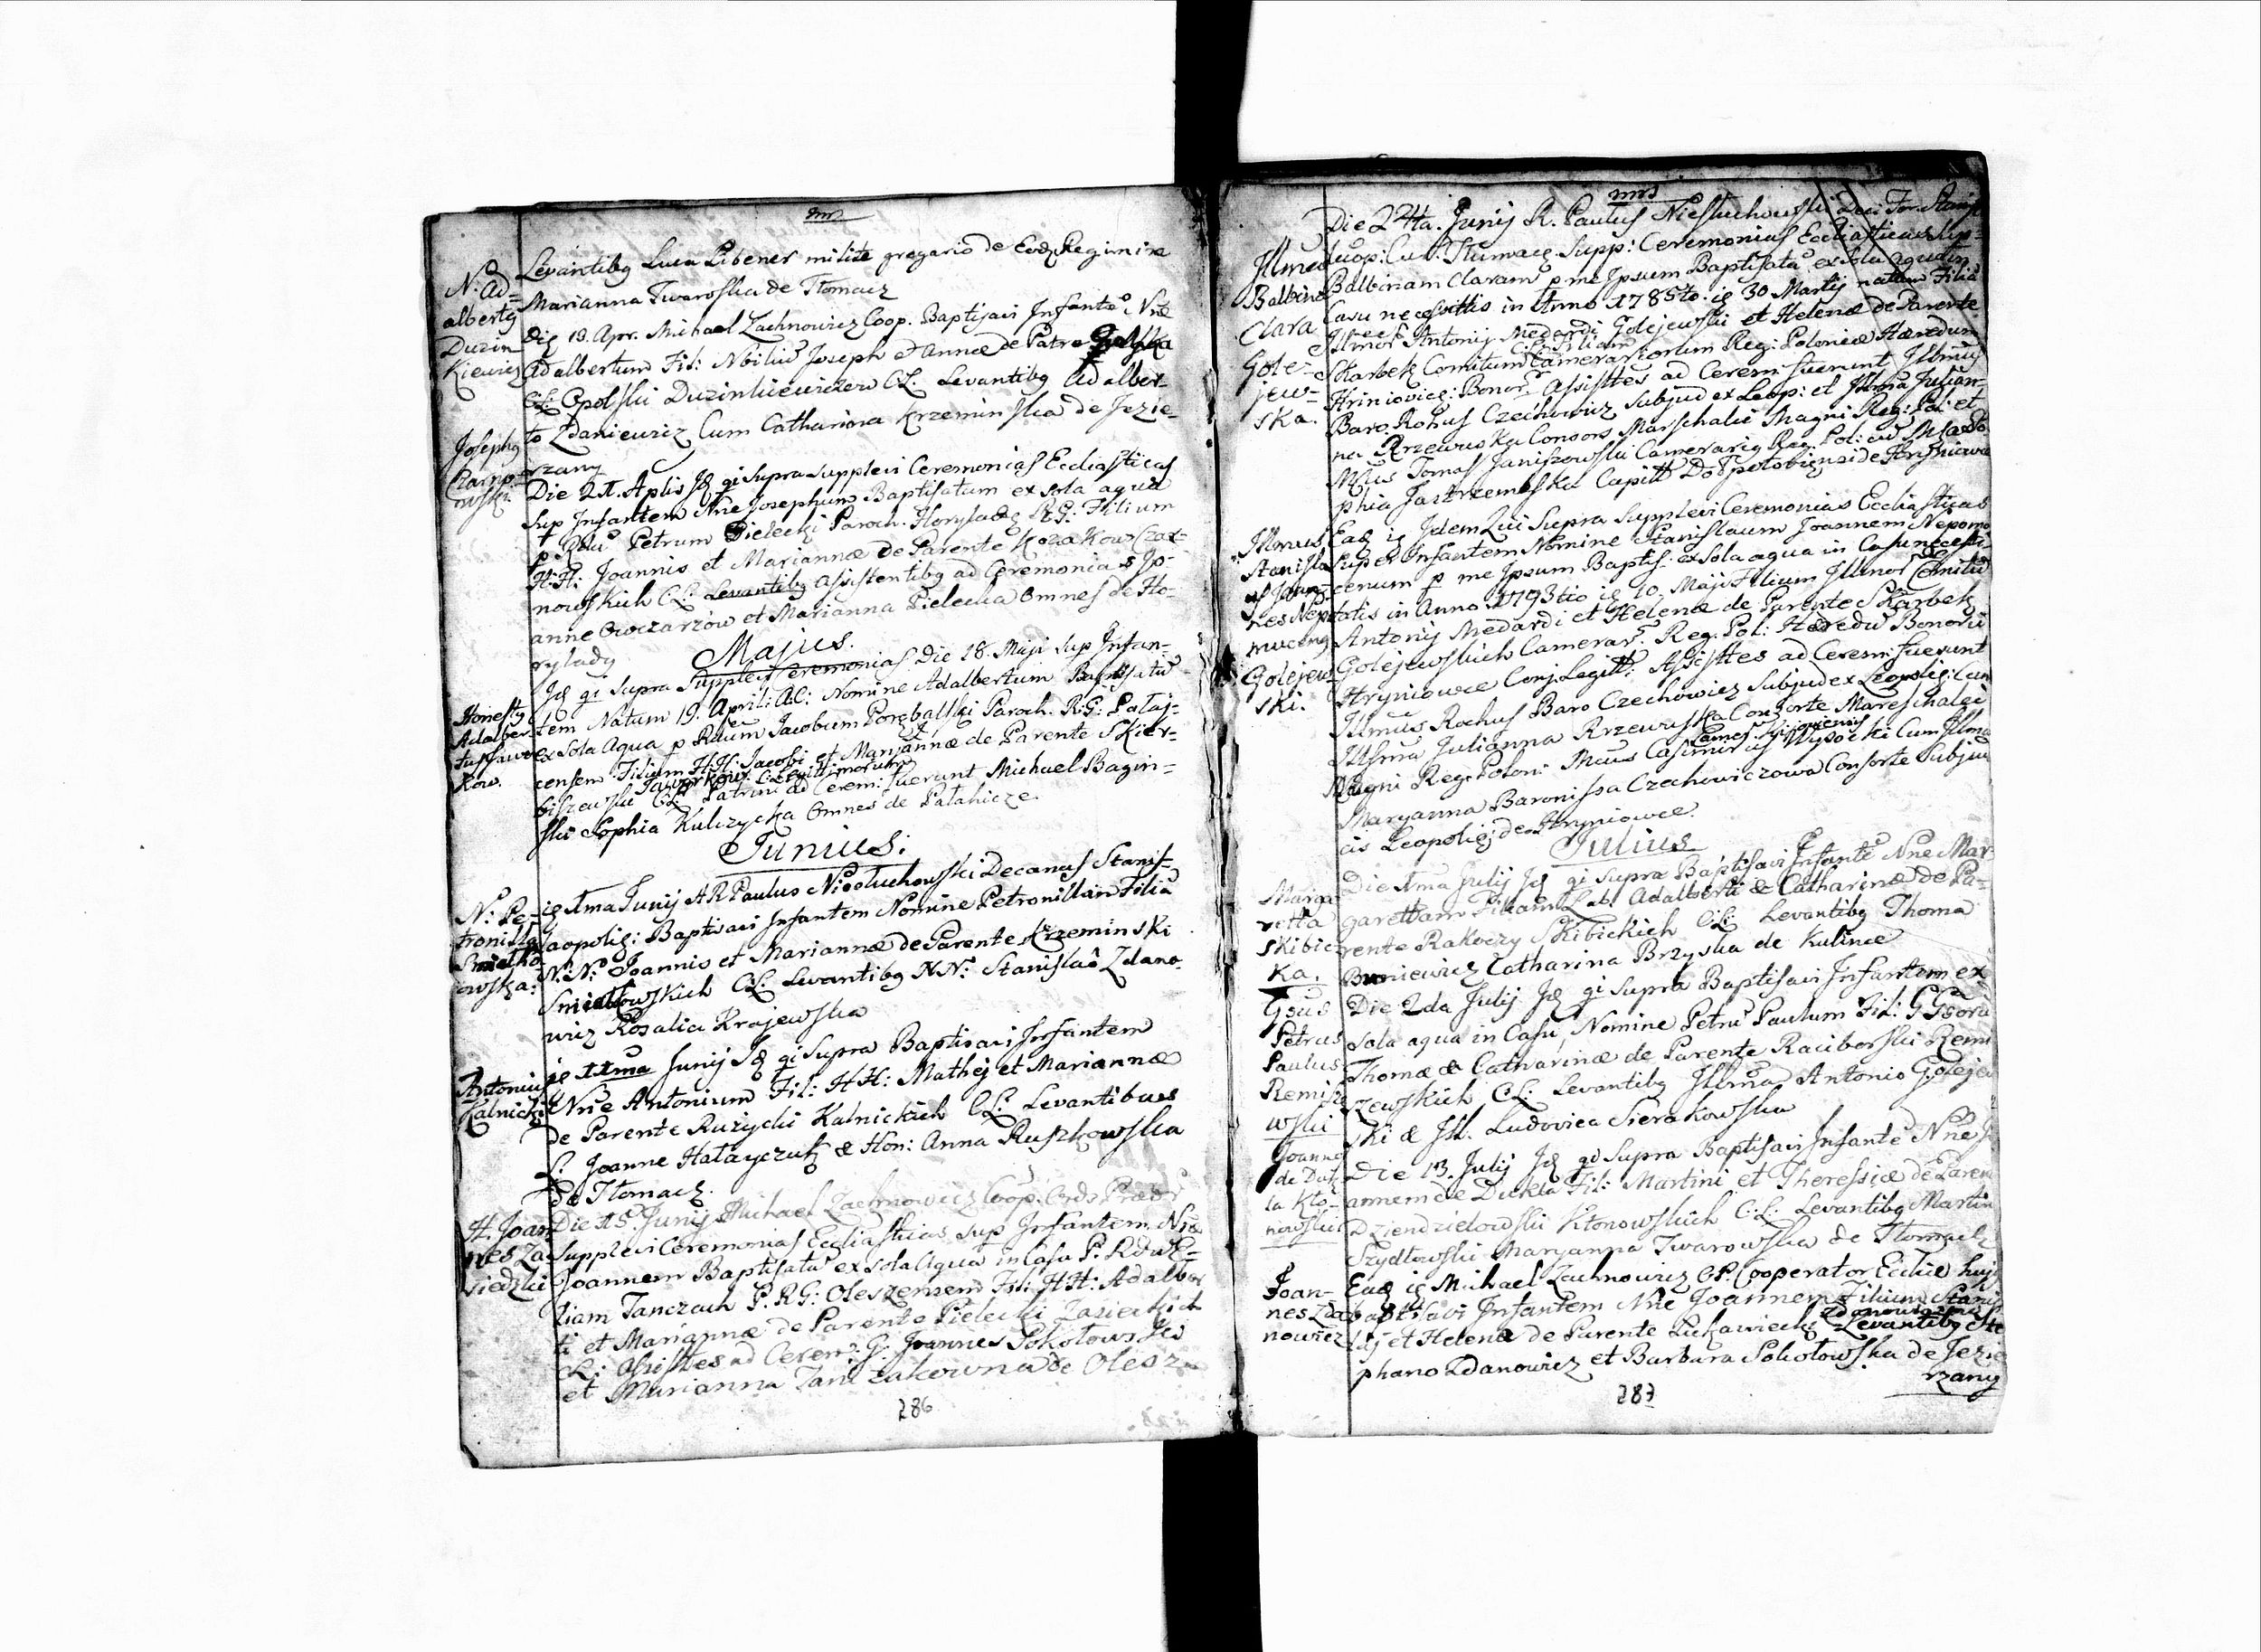 Levantibg Luca Libener milite gregario de Eodz Regimine
Marianna Twarowska de Tłomacz
N: Ad=
albertg
Duzin
Kiewicz
Die 19. Apr. Michael Zachnowicz Coop. Baptisavi Infante Nne
Adalbertum Fil: Nbiliu Joseph et Annæ de Patre
CL: Opolski Duzinkiewiczow CL. Levantibg Adalber-
to Zdaniewicz Cum Catharina Krzeminska de Jezie-
rzany
Josephg
Czarno=
wski.
Die 21. Aplis Jd qi supra supplevi Ceremonias Eccliasticas
sup Infantem Nne Josephum Baptisatum ex sola aqua
p Petrum Pielecki Paroch. Horyladz RG: Filium
H:H: Joannis et Mariannæ de Parente Kozakow Czar-
nowskich CL: Levantibg Assistentibg ad Ceremonias Jo-
anne Owczarzow et Marianna Pielecka Omnes de Ho-
rylady
Majus.
Honestg
Adalber
tus Jawor
kow.
Jd qi supra Supplevi Ceremonias Die 18. Maji sup Infan-
tem Natum 19. April: AC: Nomine Adalbertum Baptisatu
ex Sola Aqua p Rdum Jacobum Porębalski Paroch. R:G: Palaj-
censem Filium H:H: Jacobi et Mariannæ de Parente Skier-
Jaworkow CL Legitt: morum
biszewski CL: Patrini ad Cerem: fuerunt Michael Bagin-
ski Sophia Kulczycka Omnes de Pałahicze.
Junius.
N: Pe-
tronilla
Smietko
owska:
ig 1ma Junij AR Paulus Niesłuchowski Decanus Stanis-
laopolig: Baptisavi Infantem Nomine Petronillam Filia
N:N: Joannis et Mariannæ de Parente Krzeminski
CL: Levantibg N.N: Stanislao Zdano-
wicz Rosalia Krajewska
Antoniug
Kalnicki
ig 11ma Junij Jd qi supra Baptisavi Infantem
Nne Antonium Fil: HH: Mathej et Mariannæ
de Parente Ruzycki Kalnickich CL: Levantibus
L: Joanne Hatayczuk & Hon: Anna Ruszkowska
de Tłomacz.
H. Joan-
nes Za-
siedzki
Die 15. Junij Michael Zachnowicz Coop: Ords Præd:
Supplevi Ceremonias Eccliasticas sup Infantem Nne
Joannem Baptisatu ex sola Aqua in Casu P.
liam Tanczach P. RG: Oleszensem Fil: H:H: Adalber
ti et Mariannæ de Parente Pielecki Zasieckich
CL: Assisttes ad Cerem: G: Joannes Sokołowski
et Marianna de Olesz
286
Die 24ta. Junij R. Paulus Niesłuchowski
Illma
Balbina
Clara
Gole-
jew-
ska.
leop: Cur: Tłumacz Supp: Ceremonias Eccliasticas sup:
Balbinam Claram p me Ipsum Baptisata ex sola aqua in
Casu necessittis in Anno 1785to. ig 30 Martij natam Filia
Illmor Antonij Medardi Golejewski et Helenæ de Parente
CL: Filiam
Skarbek Comitum Camerariorum Reg: Poloniæ Hæredum
Hriniovice: Bonor Assisttes ad Cerem fuerunt Illmus
Baro Rohus Czechowicz Subjudex Leop: et Illma Julian-
na Rzewuska Consors Marschalis Magni Reg: Pol: et
Mcus Tomas Janiszowski Camerarig Reg. Pol: cu
phia Jastrzembska Capitt
Illmus
Stanisla
us Joan-
nes Nepo
muceng
Golejew-
ski.
Eadz ig Idem Qui Supra Supplevi Ceremonias Eccliasticas
super Infantem Nomine Stanislaum Joannem Nepomo
cenum p me Ipsum Baptis: ex sola aqua in Casu necessi-
tatis in Anno 1793tio ig 10. Maji Filium Illmor Comitu
Antonij Medardi et Helenæ de Parente Skarbek
Golejewskich Camerar: Reg: Pol: Hæredu Bonoru
Hryniowce Conj. Legitt: Assisttes ad Cerem: fuerunt
Illmus Rochus Baro Czechowicz Subjudex Leopolig: Cum
Illsma Julianna Rzewuska Consorte Mareschalci
Magni Reg: Poloni: Mcus Casimirus Wysocki Cum Illma
Maryanna Baronissa Czechowiczowa Consorte Subjud
cis Leopolig: de Hryniowce.
Julius
Marga
retta
Skibic
ka.
Die 1ma Julij Jd qi supra Baptisavi Infante Nne Mar-
garettam Filiam Lab: Adalberti & Catharinæ de Pa-
rente Rakoczy Skibickich CL: Levantibg Thoma
Buniewicz Catharina Brzyska de Kutince
Gsus
Petrus
Paulus
Remisz
wski
Die 2da Julij Jd qi Supra Baptisavi Infantem ex
sola aqua in Casu, Nomine Petru Paulum Fil: G Gsoru
Thomæ & Catharinæ de Parente Raciborski Remi
szewskich CL: Levantibg Illmo Antonio Goleje
ski & Ill. Ludovica Sierakowska
Joannes
de Duk
la Kło-
nowski
Die 13. Julij Jd qi Supra Baptisavi Infante Nne Jo
annem de Dukla Fil: Martini et Theresiæ de Paren
Dziendzielowski Kłonowskich C:L: Levantibg Martin
Szydłowski Maryanna Twarowska de Tłomacz
Joan-
nes Zda
nowicz
Eadz ig Michael Zachnowicz OP. Cooperator Eccliæ hujs
baptisavi Infantem Nne Joannem Filium Stanis
lai et Helenæ de Parente Łukawiecki Levantibg Ste
phano Zdanowicz et Barbara Sokołowska de Jezie
rzany
287